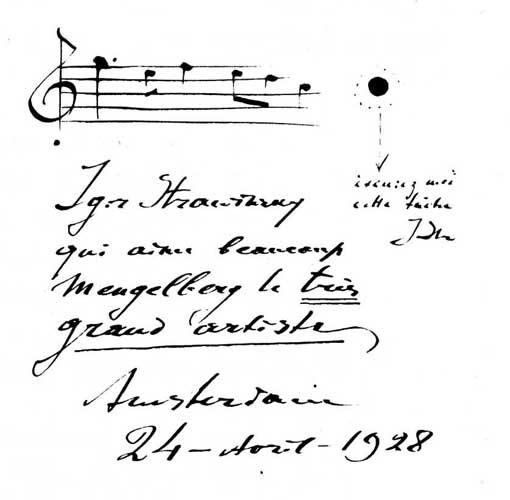 Igor Strawinsky
qui aime beaucoup
Mengelberg le très
grand artiste
Amsterdam
24 - Avril - 1928
excusez moi
cette tache
IStr